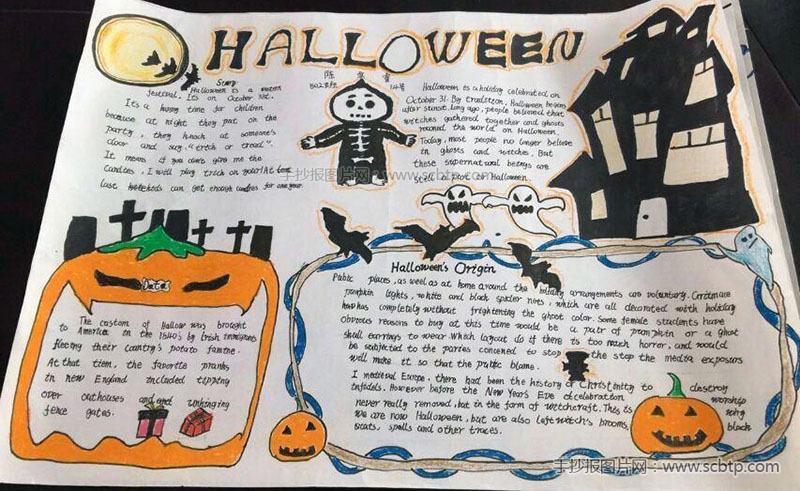 HALLOWEEN
Story
Halloween is a western
festival. It's on October 31st.
It's a happy time for children
because at night they put on the
party, they knock at someone's
door and say, "trick or tread".
It means if you don't give me the
candies, I will play trick on you! At
last can get enough candies for one year.
陈 童
502班 14号
Halloween is a holiday celebrated on
October 31. By tradition, Halloween begins
after sunset. Long ago, people believed that
witches gathered together and ghosts
roamed the world on Halloween.
Today, most people no longer believe
in ghosts and witches. But
these supernatural beings are
still a part of Halloween.
手抄报图片网:www.scbtp.com
Date
The custom of Hallow was brought
to America in the 1840's by Irish immigrants
fleeing their country's potato famine.
At that tiem, the favorite pranks
in new England included tipping
over outhouses and and unhinging
fence gates.
Halloween's Origin
Pubic places, as well as at home around the holiday arrangements are voluntary.
pumpkin lights, white and black spider nits, which are all decorated with holiday
has completely without frightening the ghost color. Some female students have
obvious reasons to buy at this time would be a pair of promphin or a ghost
skull earrings to wear. Which layout do if there is too much horror, and would
be subjected to the parties concened to stop the stop the media exposurs
will make it so that the public blame.
I medieval Europe, there had been the history of Christmity to destroy
infidels. However before the New Year's Eve of celebration worship
never really removed, but in the form of witchcraft. This is why
we are now Halloween, but are also left witch's brooms, black
scats, spells and other traces.
手抄报图片网:www.scbtp.com